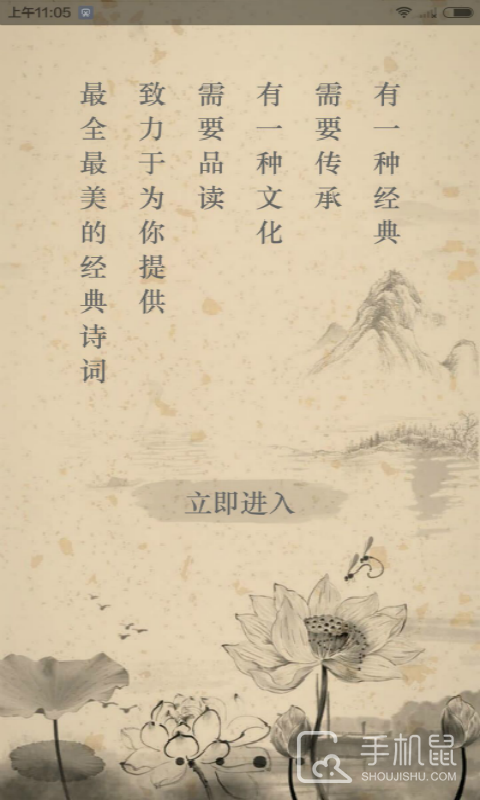 上午11:05
有一种经典
需要传承
有一种文化
需要品读
致力于为你提供
最全最美的经典诗词
立即进入
手机鼠
SHOUJISHU.COM